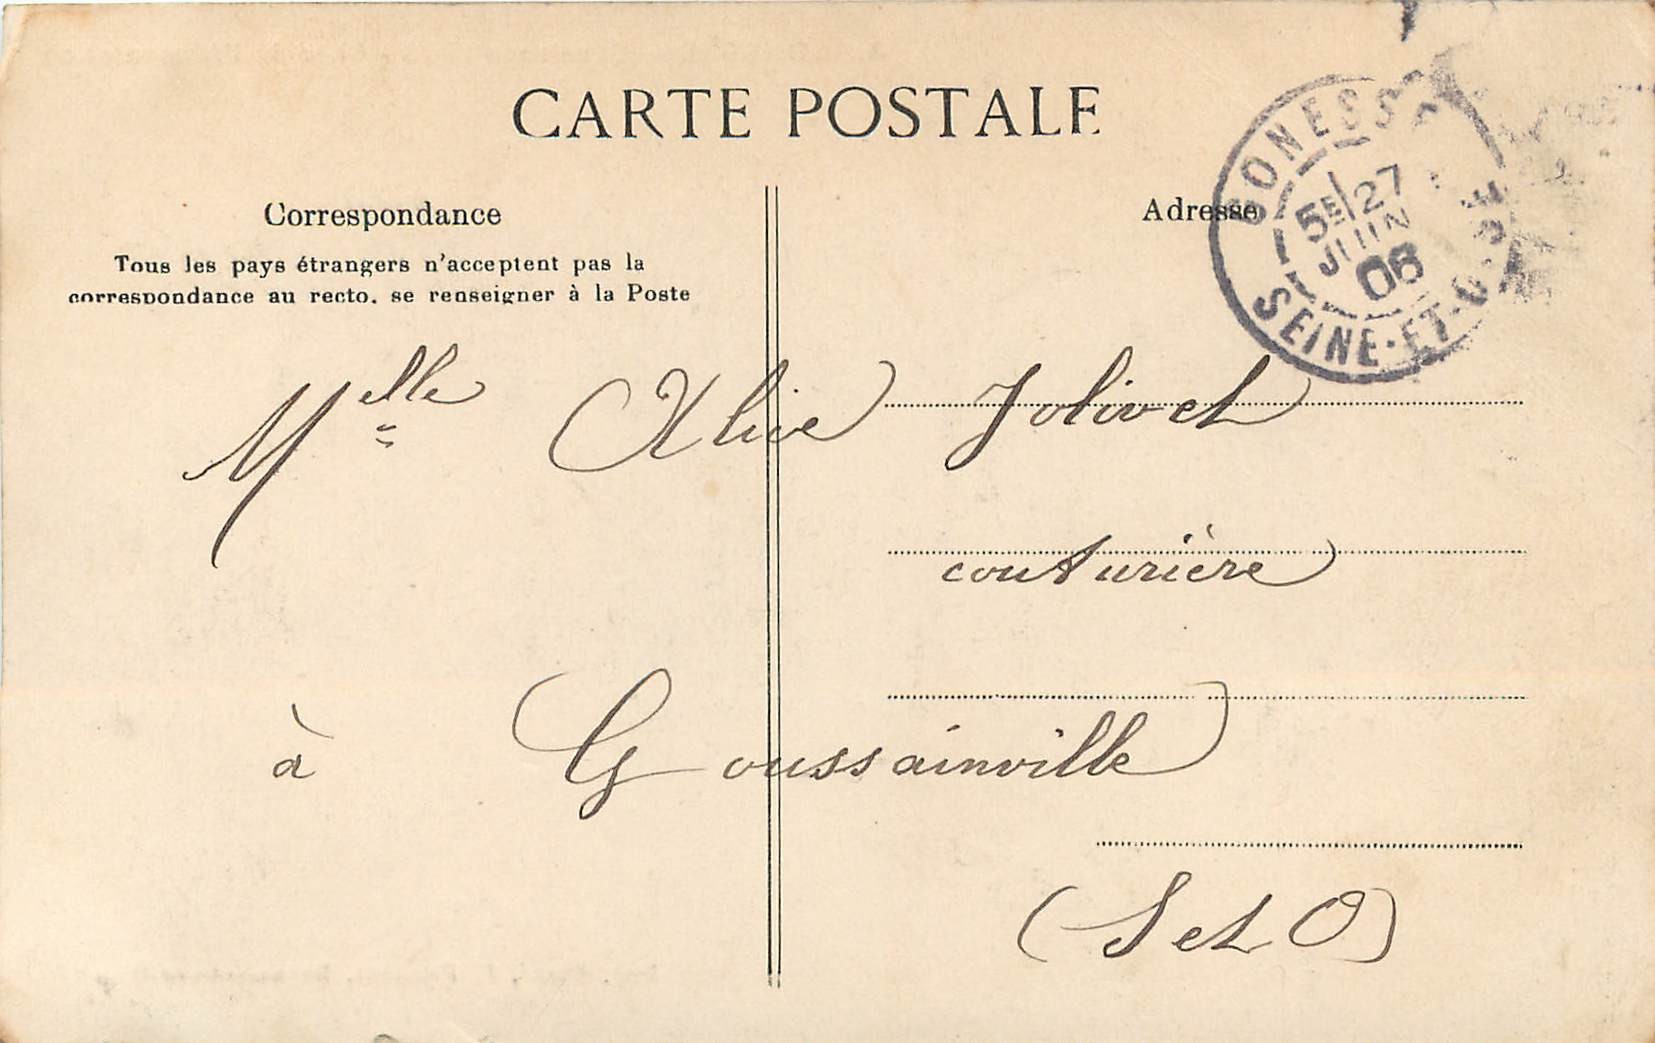 CARTE POSTALE
Correspondance
Tous les pays étrangers n'acceptent pas la
correspondance au recto, se renseigner à la Poste
Adresse
GONESSE
5E/27
JUIN
06
SEINE-ET-OISE
Melle Alice Jolivet
couturière
à Goussainville
(S et O)